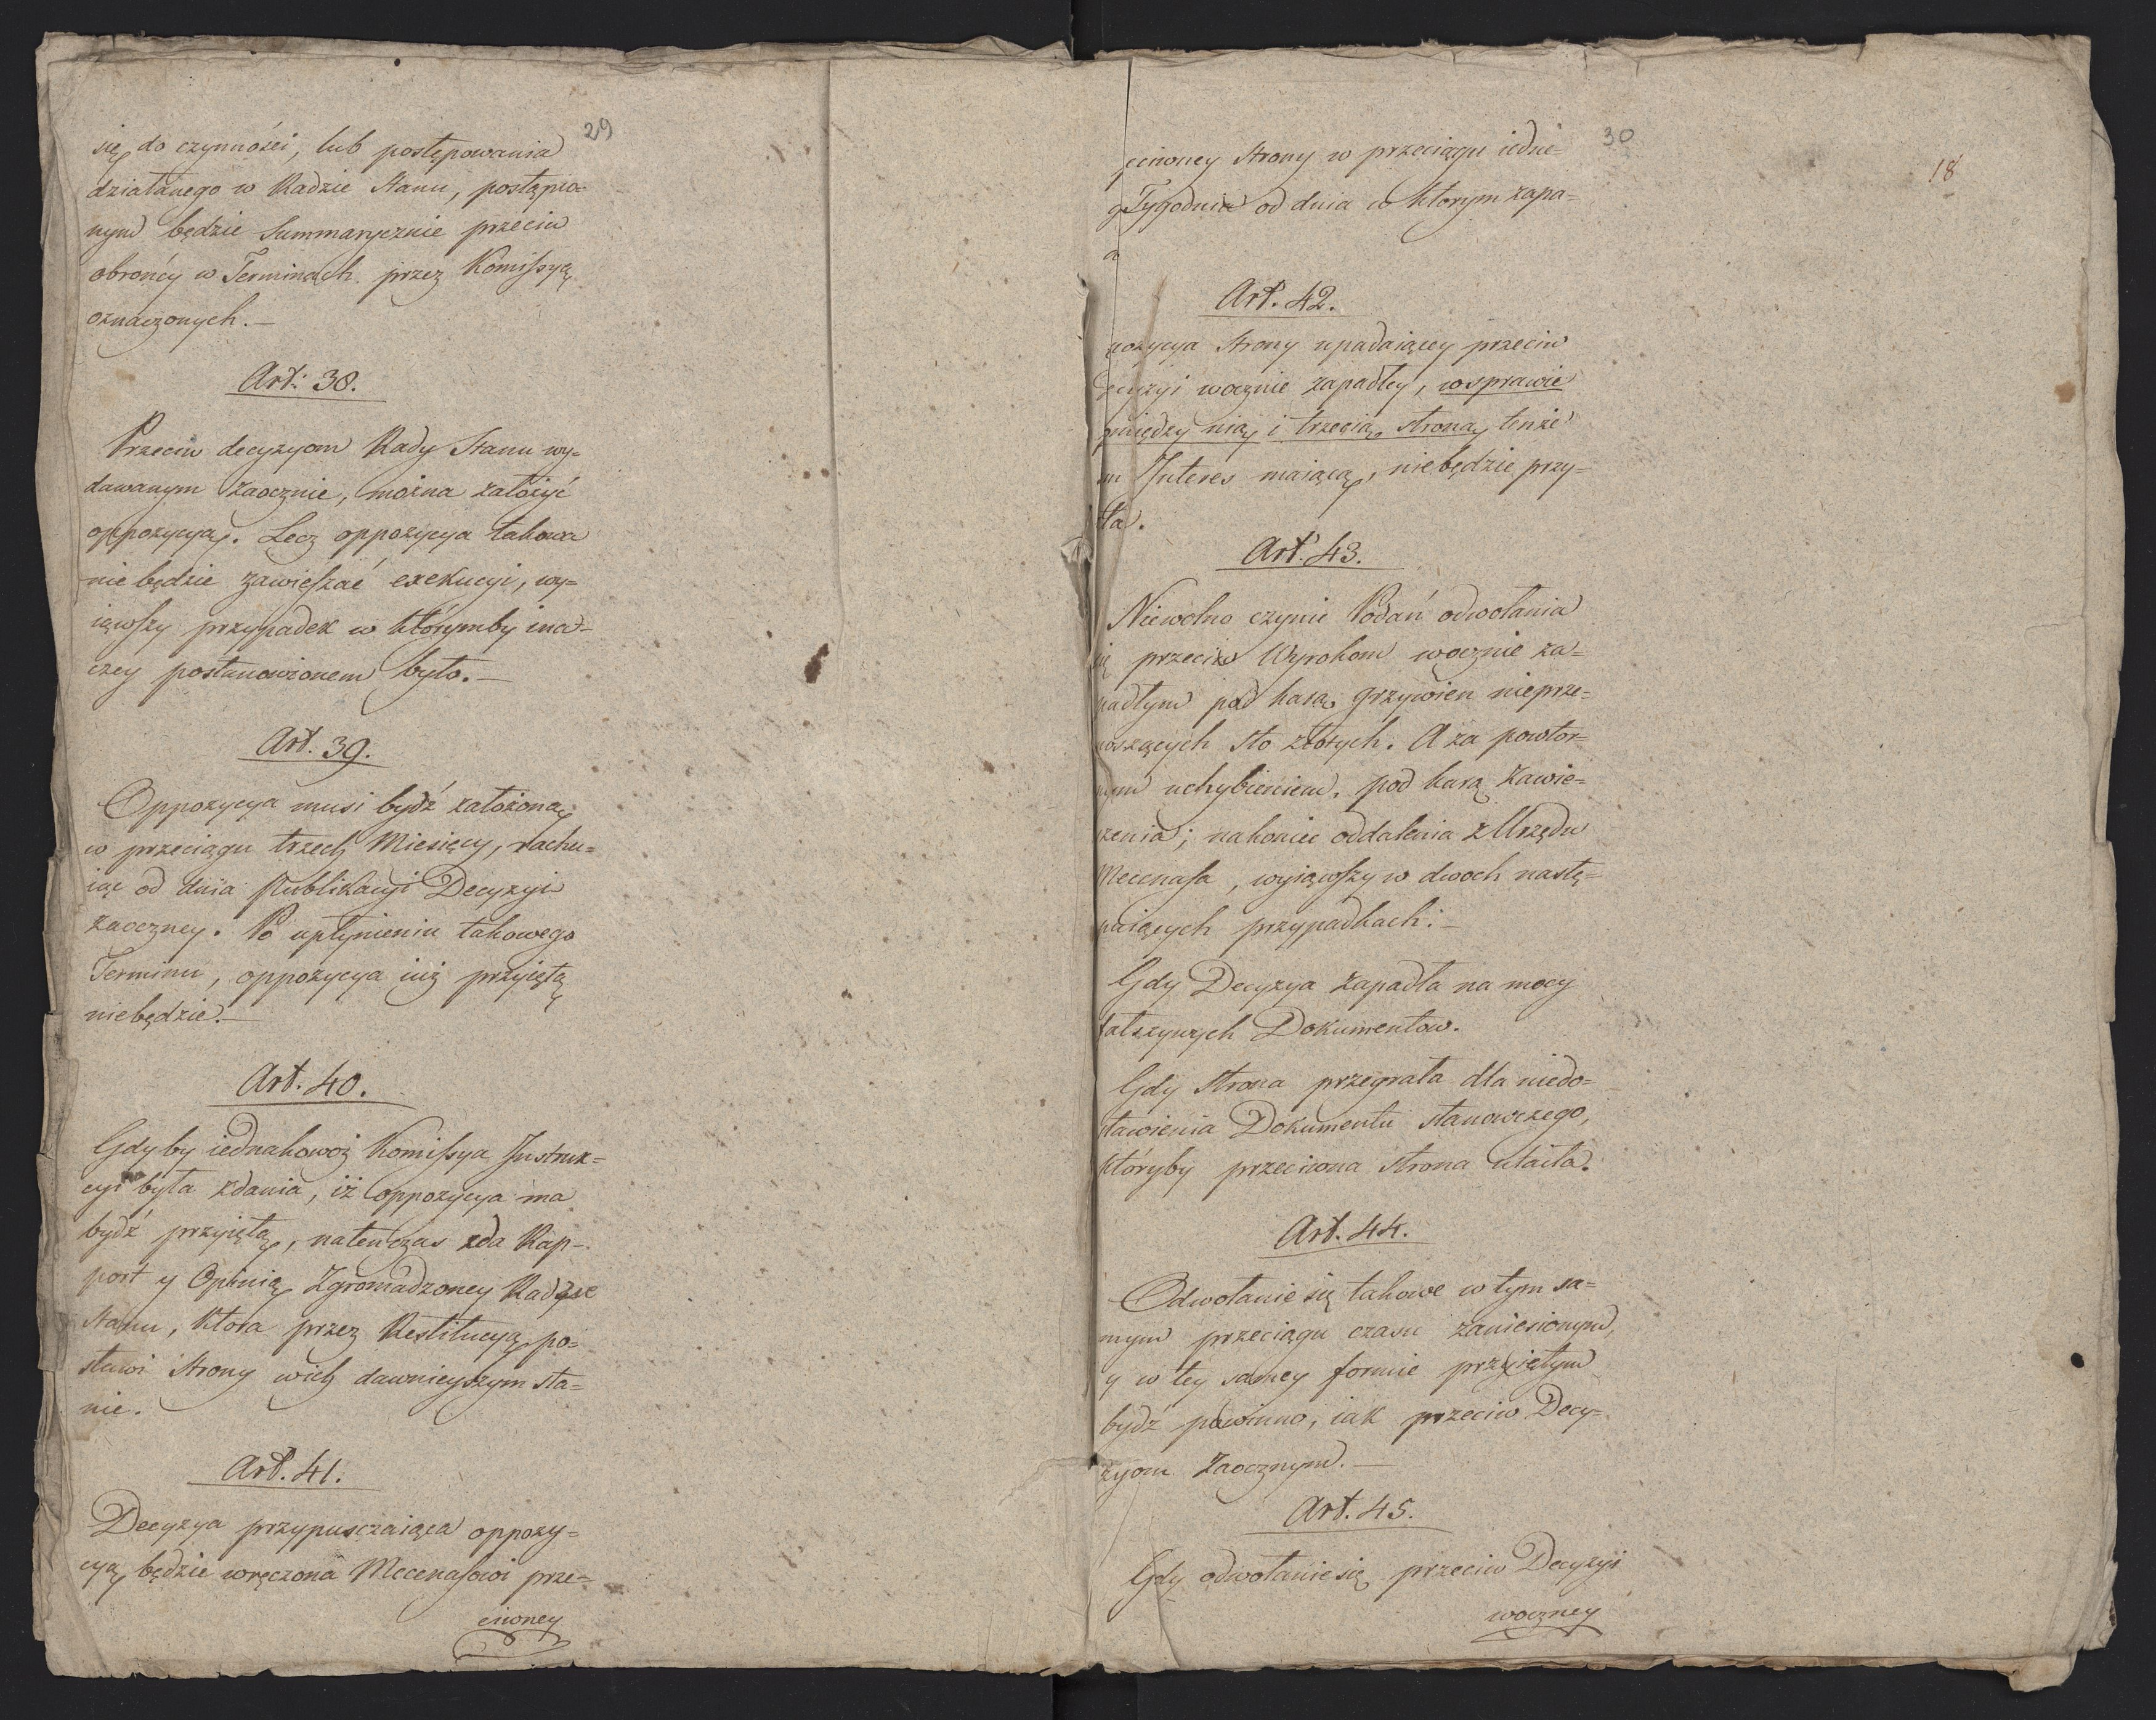 29
się do czynności, lub postępowania
działanego w Radzie Stanu, postąpio=
nym będzie Summarycznie przeciw
obrońcy w Terminach przez Komissyą
oznaczonych.—
Art: 38.
Przeciw decyzyom Rady Stanu wy=
dawanym zaocznie, można założyć
oppozycyą. Lecz oppozycya takowa
nie będzie zawieszać exekucyi, wy=
iąwszy przypadek w którymby ina=
czey postanowionem było.—
Art. 39.
Oppozycya musi bydź założoną
w przeciągu trzech Miesięcy, rachu=
iąc od dnia Publikacyi Decyzyi
zaoczney. Po upłynieniu takowego
Terminu, oppozycya iuż przyiętą
niebędzie.—
Art. 40.
Gdyby iednakowoż Komissya Instruk=
cyi była zdania, iż oppozycya ma
bydź przyiętą, natenczas zda Rap=
port y Opinią Zgromadzoney Radzie
Stanu, Ktora przez Restitucyą po=
stawi Strony wich dawnieyszym sta=
nie.
Art. 41.
Decyzya przypuszczaiąca oppozy=
cyą będzie wręczona Mecenasowi prze=
ciwney
30
18
ciwney Strony w przeciągu iedne=
g Tygodnia od dnia w ktorym zapa=
a
Art. 42.
pozycya Strony upadaiącey przeciw
ecyzyi wocznie zapadłey, wsprawie
między nią i trzecią stroną tenże
m Interes maiącą, niebędzie przy=
ta.
Art. 43.
Niewolno czynić Podań odwołania
ię przeciw Wyrokom wocznie za=
padłym pod karą grzywien nieprze=
noszących sto złotych. A za powtor=
nym uchybieniem, pod karą zawie=
zenia; nakoniec oddalenia z Urzędu
Mecenasa, wyiąwszy w dwoch nastę=
puiących przypadkach:—
Gdy Decyzya zapadła na mocy
fałszywych Dokumentow.
Gdy Strona przegrała dla niedo=
stawienia Dokumentu stanowczego,
któryby przeciwna strona utaiła.
Art. 44.
Odwołanie się takowe w tym sa=
mym przeciągu czasu zaniesionym,
y w tey samey formie przyiętym
bydź powinno, iak przeciw Decy=
zyom Zaocznym.—
Art. 45.
Gdy odwołanie się przeciw Decyzyi
woczney